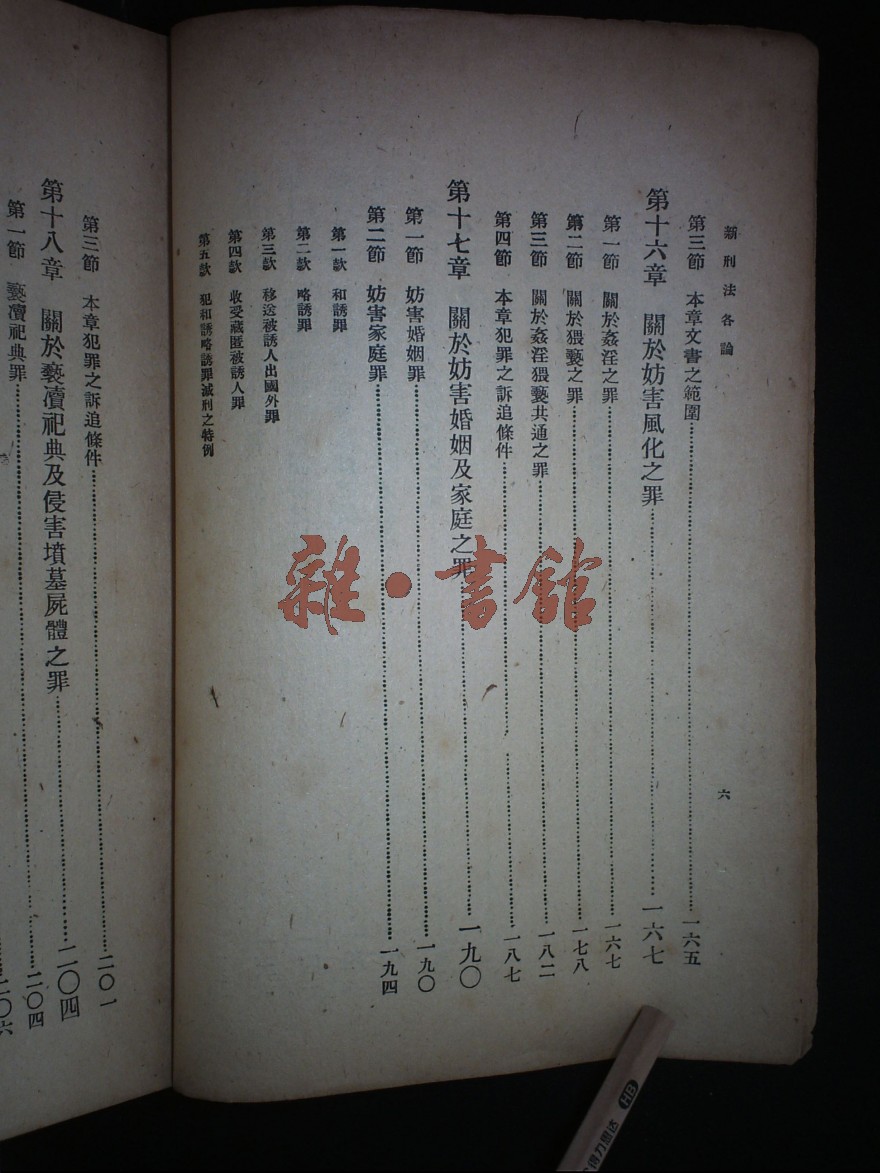 新刑法各論
第三節 本章文書之範圍……一六五
第十六章 關於妨害風化之罪……一六七
第一節 關於姦淫之罪……一六七
第二節 關於猥褻之罪……一七八
第三節 關於姦淫猥褻共通之罪……一八二
第四節 本章犯罪之訴追條件……一八七
第十七章 關於妨害婚姻及家庭之罪……一九〇
第一節 妨害婚姻罪……一九〇
第二節 妨害家庭罪……一九四
第一款 和誘罪
第二款 略誘罪
第三款 移送被誘人出國外罪
第四款 收受藏匿被誘人罪
第五款 犯和誘略誘罪減刑之特例
六
第三節 本章犯罪之訴追條件……二〇一
第十八章 關於褻瀆祀典及侵害墳墓屍體之罪……二〇四
第一節 褻瀆祀典罪……二〇四
二〇六
雜·書館
HB
得力思达